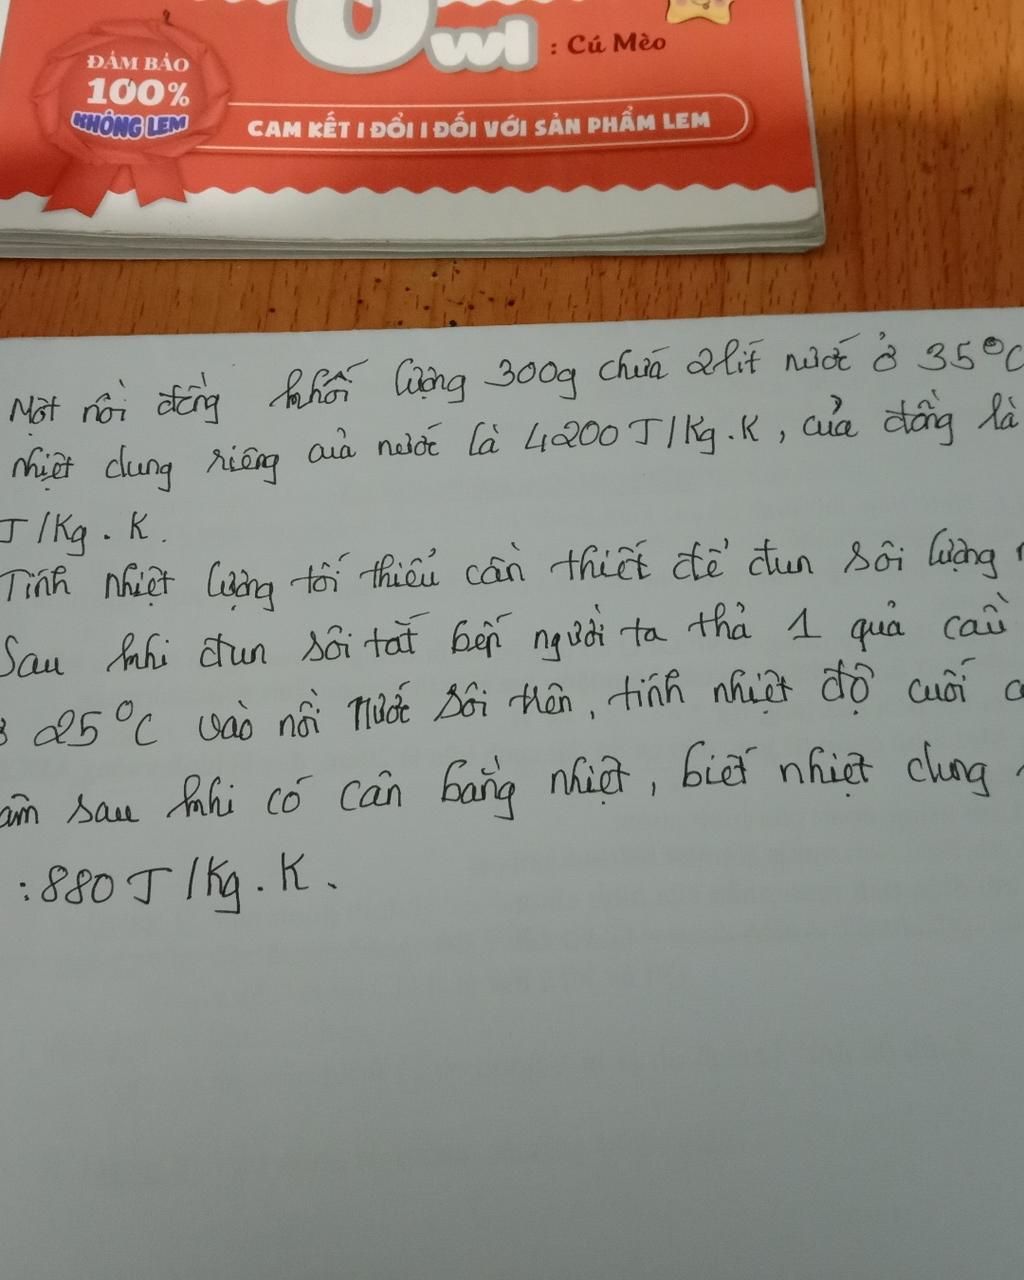 Owl : Cú Mèo
ĐẢM BẢO
100%
KHÔNG LEM
CAM KẾT 1 ĐỔI 1 ĐỐI VỚI SẢN PHẨM LEM
Một nồi đồng khối lượng 300g chứa 2 lít nước ở 35°C
nhiệt dung riêng của nước là 4200 J/Kg.K, của đồng là
J/Kg.K.
Tính nhiệt lượng tối thiểu cần thiết để đun sôi lượng
Sau khi đun sôi tắt bếp người ta thả 1 quả cầu
25°C vào nồi nước sôi trên, tính nhiệt độ cuối
sau khi có cân bằng nhiệt, biết nhiệt dung
: 880 J/Kg.K.